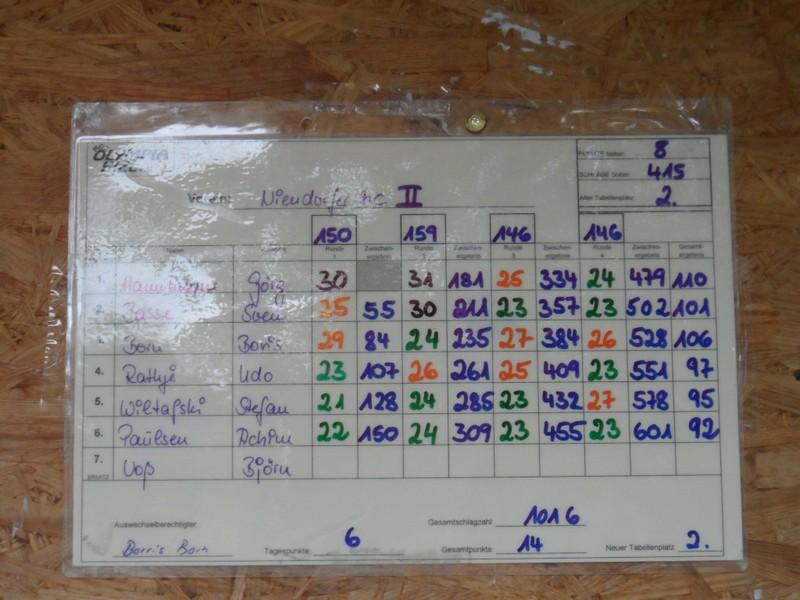 OLYMPIA
Punkte bisher: 8
Schläge bisher: 415
Alter Tabellenplatz: 2.
Verein: Niendorfer II
150 159 146 146
Name Runde Zwischen-ergebnis Runde Zwischen-ergebnis Runde Zwischen-ergebnis Runde 4 Zwischen-ergebnis Gesamt-ergebnis
1. Görg 30 31 181 25 334 24 479 110
2. Basse Sven 25 55 30 211 23 357 23 502 101
3. Born Boris 29 84 24 235 27 384 26 528 106
4. Rathje Udo 23 107 26 261 25 409 23 551 97
5. Wiltafski Stefan 21 128 24 285 23 432 27 578 95
6. Paulsen Achim 22 150 24 309 23 455 23 601 92
7. Voß Björn
ERSATZ
Auswechselberechtigter: Gesamtschlagzahl 1016
Borris Born Tagespunkte: 6 Gesamtpunkte: 14 Neuer Tabellenplatz: 2.